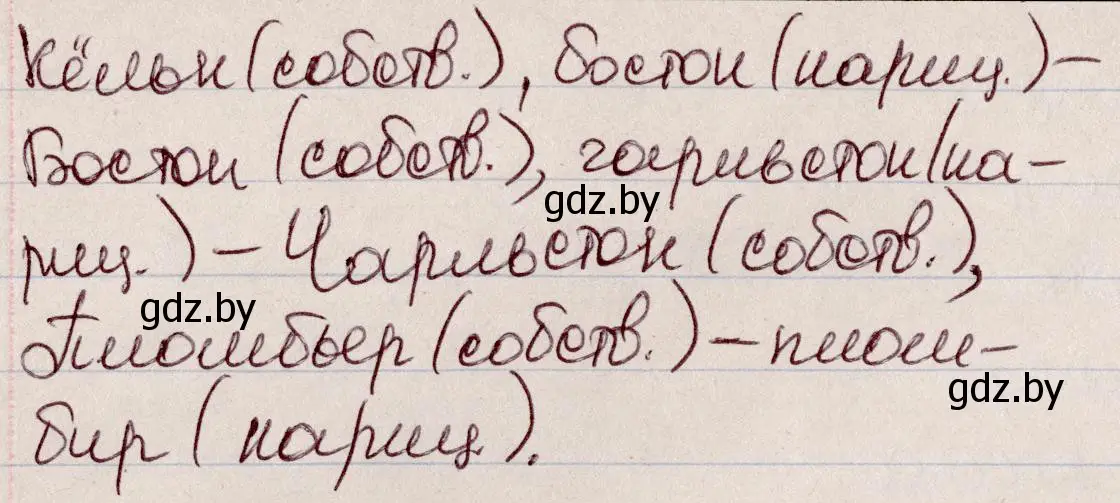 Кёльн (собств.), бостон (нариц.) –
Бостон (собств.), чарльстон (на-
gdz.by
риц.) – Чарльстон (собств.),
gdz.by
Пломбьер (собств.) – плом-
gdz.by
бир (нариц.).